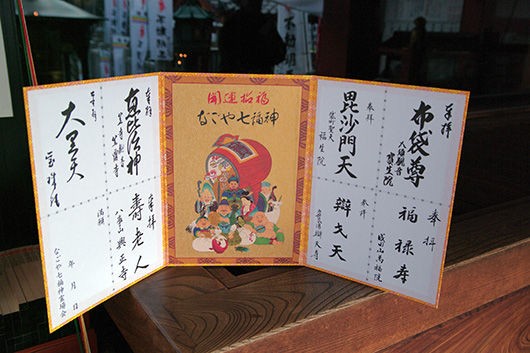 奉拝
布袋尊
大須観音
宝生院
奉拝
福禄寿
成田山萬福院
奉拝
毘沙門天
福生院
奉拝
辯才天
開運招福
なごや七福神
奉拝
奉拝
寿老人
八事山興正寺
大黒天
満願
年 月 日
なごや七福神霊場会